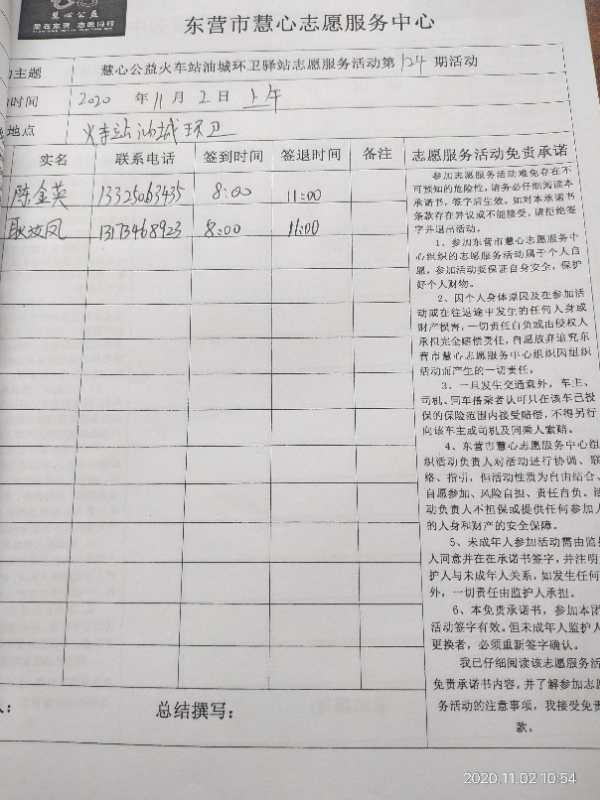 慧心公益
爱在东营 志愿同行
东营市慧心志愿服务中心
主题 慧心公益火车站油城环卫驿站志愿服务活动第124期活动
时间 2020年11月2日上午
地点 火车站油城环卫
实名 联系电话 签到时间 签退时间 备注
陈金英 13325063435 8:00 11:00
耿玫凤 13173468923 8:00 11:00
志愿服务活动免责承诺
参加志愿服务活动难免存在不
可预知的危险性,请务必仔细阅读本
承诺书,签字后生效。如对本承诺书
条款存在异议或不能接受,请拒绝签
字并退出活动。
1、参加东营市慧心志愿服务中
心组织的志愿服务活动属于个人自
愿,参加活动要保证自身安全,保护
好个人财物。
2、因个人身体原因及在参加活
动或在往返途中发生的任何人身或
财产损害,一切责任自负或由侵权人
承担完全赔偿责任,自愿放弃追究东
营市慧心志愿服务中心组织因组织
活动而产生的一切责任。
3、一旦发生交通意外,车主、
司机、同车搭乘者认可只在该车已投
保的保险范围内接受赔偿,不得另行
向该车主或司机及同乘人索赔。
4、东营市慧心志愿服务中心组
织活动负责人对活动进行协调、联
络、指引,但活动性质为自由结合、
自愿参加、风险自担、责任自负。活
动负责人不担保或提供任何参加人
的人身和财产的安全保障。
5、未成年人参加活动需由监
人同意并在在承诺书签字,并注明
护人与未成年人关系,如发生任何
外,一切责任由监护人承担。
6、本免责承诺书,参加本
活动签字有效。但未成年人监护人
更换者,必须重新签字确认。
我已仔细阅读该志愿服务活
免责承诺书内容,并了解参加志
务活动的注意事项,我接受免责
款。
人:
总结撰写:
2020.11.02 10:54